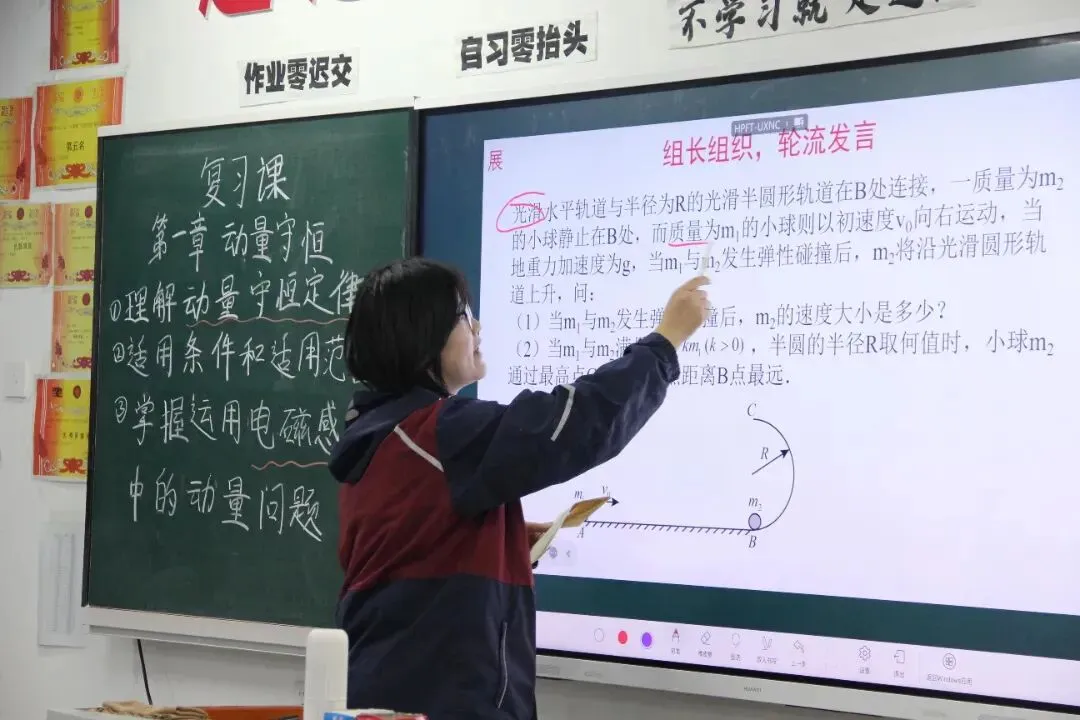 作业零迟交
自习零抬头
不学习就
第五名
复习课
第一章 动量守恒
①理解动量守恒定律
②适用条件和适用范
③掌握运用电磁感
中的动量问题
HPFT-UXNC
展
组长组织，轮流发言
光滑水平轨道与半径为R的光滑半圆形轨道在B处连接，一质量为m₂
的小球静止在B处，而质量为m₁的小球则以初速度v₀向右运动，当
地重力加速度为g，当m₁与m₂发生弹性碰撞后，m₂将沿光滑圆形轨
道上升，问：
（1）当m₁与m₂发生弹 撞后，m₂的速度大小是多少？
（2）当m₁与m₂满 km₁(k＞0)，半圆的半径R取何值时，小球m₂
通过最高点 距离B点最远．
C
R
m v₀ m₂
A B
设置 退出 返回Windows应用
HUAWEI